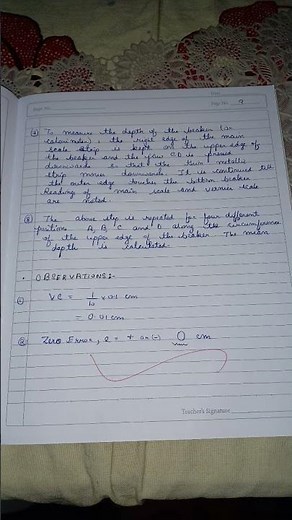 Page No. 9
④ To measure the depth of the beaker (or
calorimeter), the right edge of the main
scale strip is kept on the upper edge of
the beaker and the jaw CD is pressed
downwards so that the thin metallic
strip moves downwards. It is continued till
the outer edge touches the bottom beaker
Reading of main scale and vernier scale
are noted.
⑤ The above step is repeated for four different
positions A, B, C and D along the circumference
of the upper edge of the beaker. The mean
depth is calculated.
• OBSERVATIONS:-
① VC = 1/10 x 0.1 cm
= 0.01 cm
② Zero Error, e = + or (-) 0 cm
Teacher's Signature